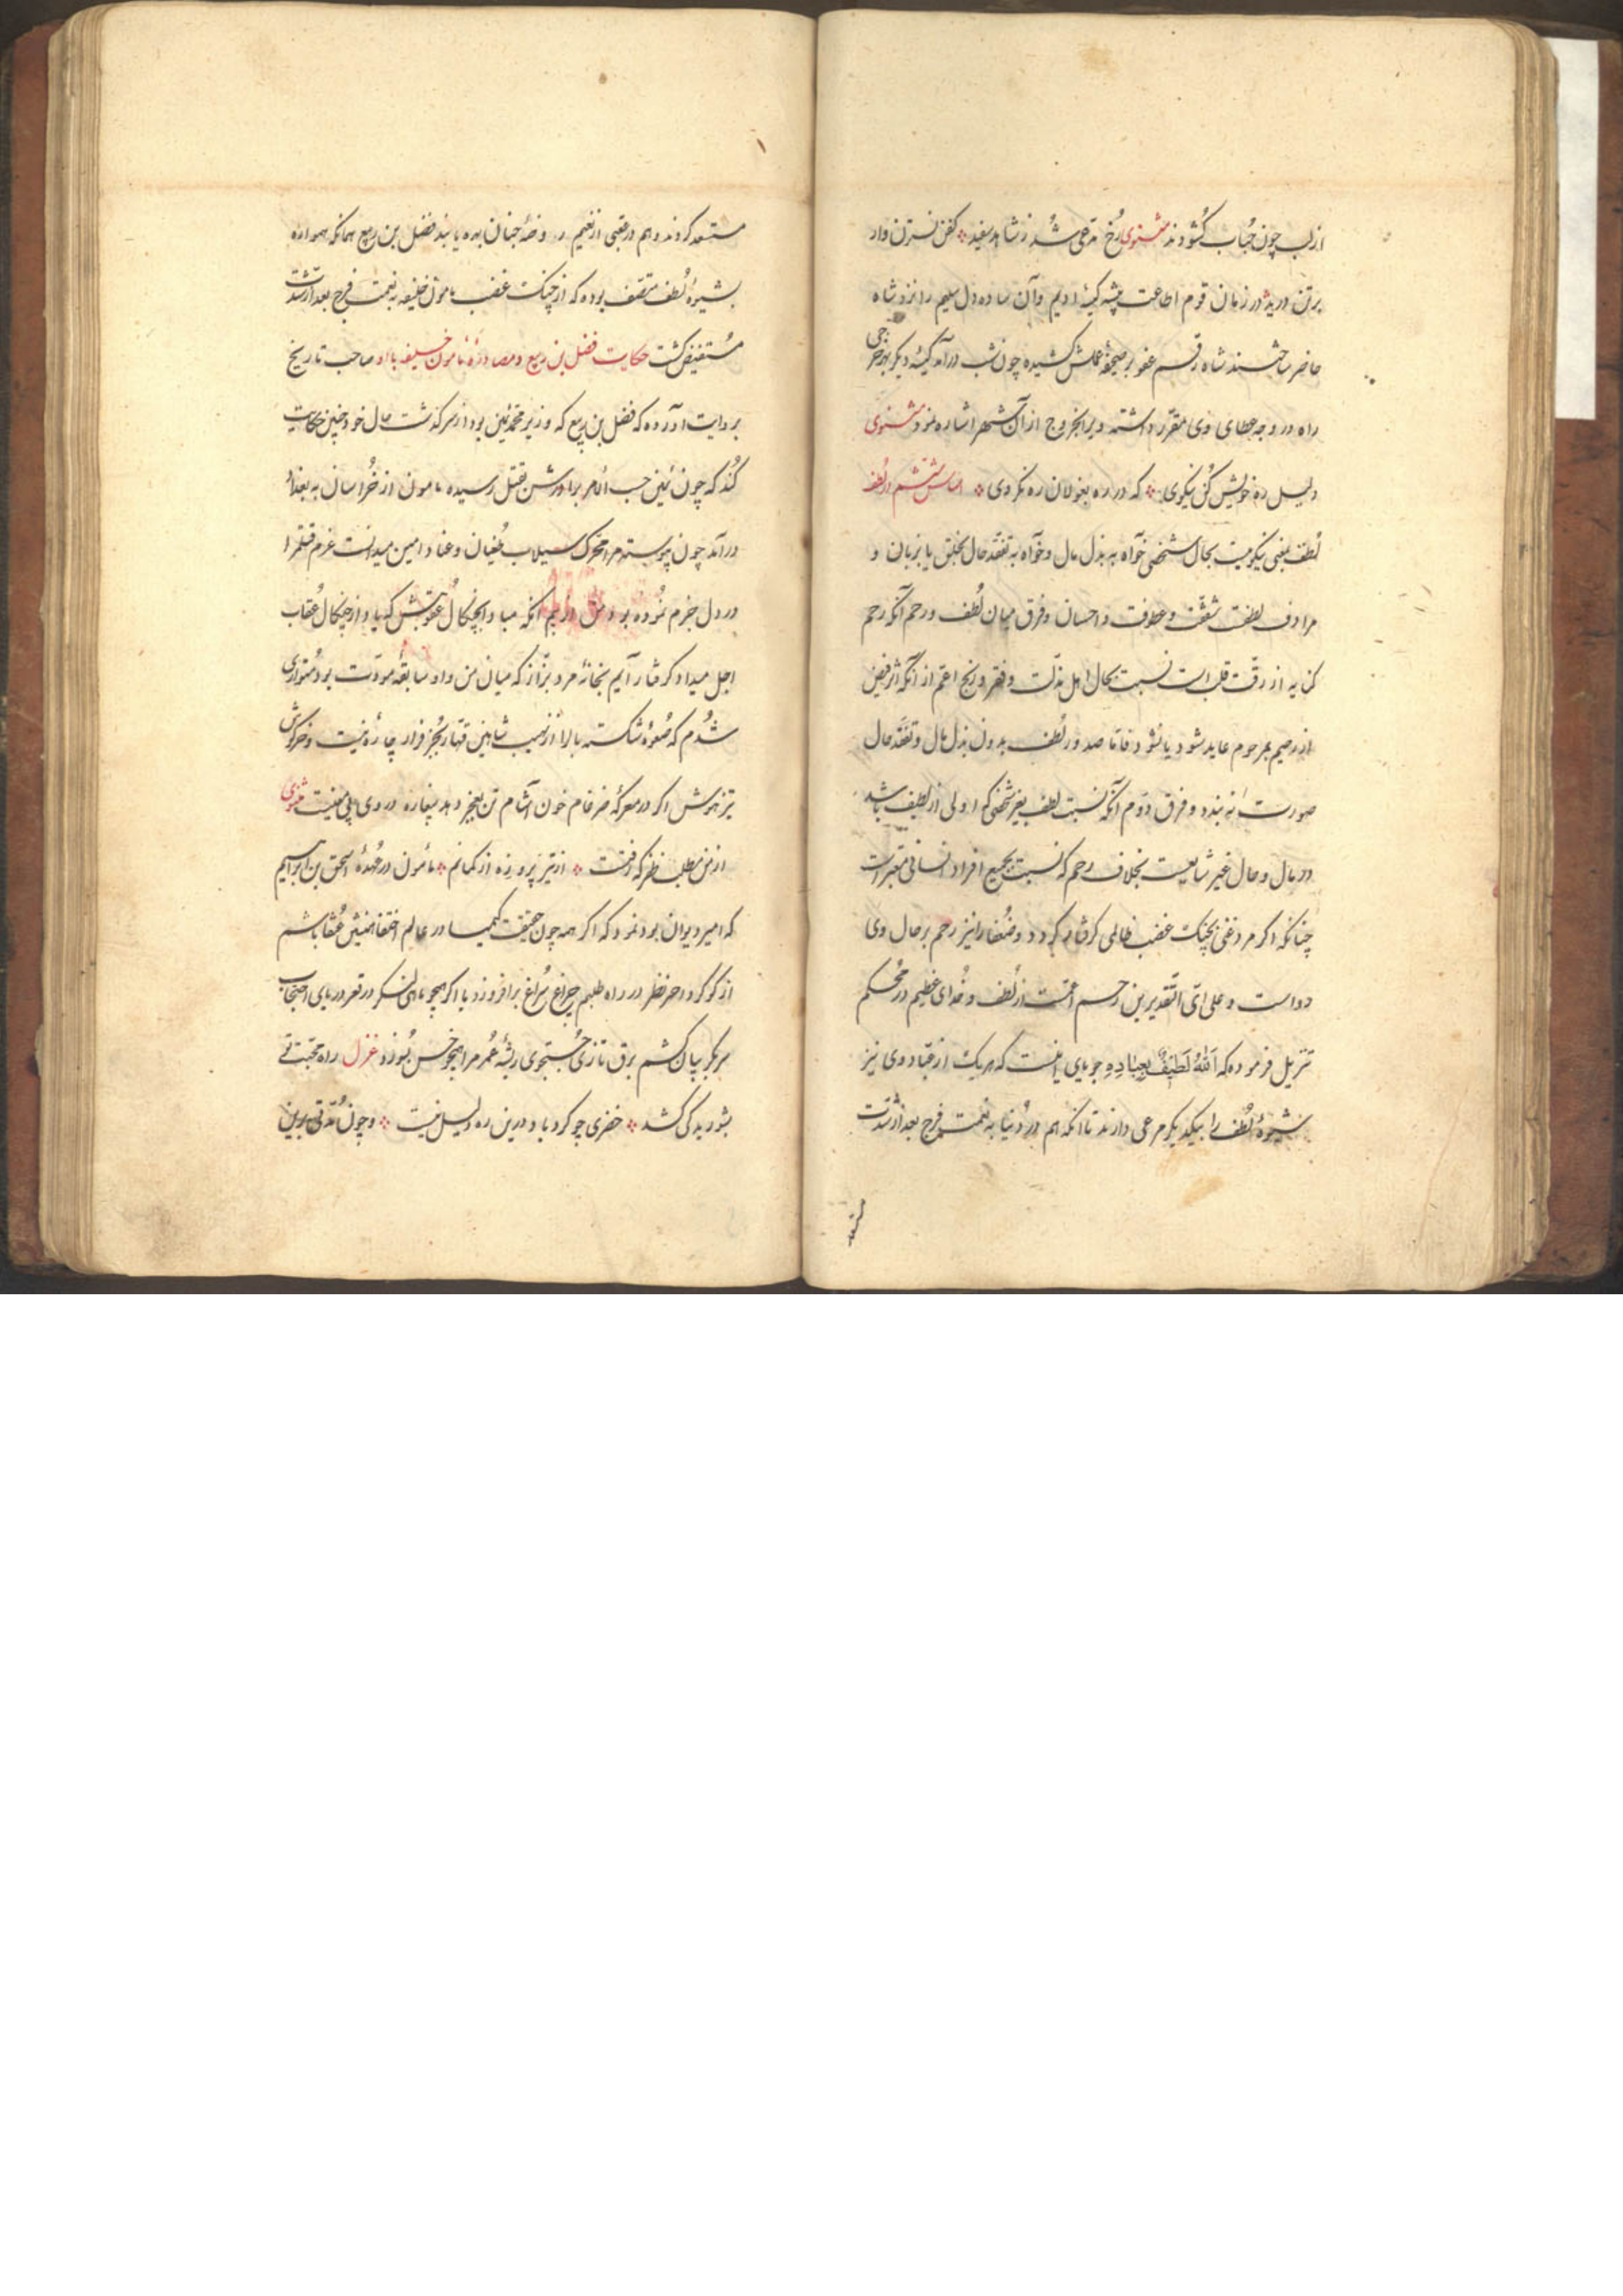 ازلب چون حباب کشودند مثنوی رخ مدعی شد ز شاهد سفید کفن نسترن وار
برتن درید در زمان قوم اطاعت پیشه کیسۀ ادیم وآن ساده دل سلیم را نزد شاه
حاضر ساختند شاه رقم عفو بر صحیفۀ عملش کشیده چون شب درآمد کیسۀ دیکر بهر خرجی
راه در وجه عطای وی مقرر داشته ویرا بخروج از آن شهر اشاره نمود مثنوی
دلیل ره خویش کن نیکوی که در ره بغولان ره نکروی اساس ششم در لطف
لطف یعنی نیکوییت بحال شخصی خواه به بذل مال وخواه به تفقد حال بخلق یا بزبان و
مرادف لطفت شفقت و عطوفت و احسان وفرق میان لطف و رحم آنکه رحم
کنایه از رقت قلب است نسبت بحال اهل مذلت وفقر ورنج اعم از آنکه اثر فیض
از رحیم بمرحوم عاید شود یا نشود فاما صدور لطف بدون بذل مال وتفقد حال
صورت نه بندد و فرق دوم آنکه نسبت لطف بغیر شخصی که اولی از لطیف باشد
در مال و حال غیر شایعست بخلاف رحم که نسبت بجمیع افراد انسانی معتبر است
چنانکه اکر مرد غنی بچنک غضب ظالمی کرفتار کردد وضعفا را نیز رحم بر حال وی
رواست و علی ای التقدیرین رحم اعمست از لطف و خدای عظیم در محکم
تنزیل فرموده که اَللهُ لَطیفٌ بِعِبادِه و جویای اینست که هریک از عباد وی نیز
شیوۀ لطف را بیکدیکر مرعی دارند تا آنکه هم در دنیا به نعمت فرج بعد از شدت
مستعد
مستعد کردند و هم در عقبی از نعیم روضۀ جنان بهره یابند فضل بن ربیع همانکه همواره
بشیوۀ لطف متصف بوده که از چنک غضب مامون خلیفه به نعمت فرج بعد از شدت
مستفیض کشت حکایت فضل بن ربیع و مصادرۀ مامون خلیفه با او صاحب تاریخ
بروایت آورده که فضل بن ربیع که وزیر محمد امین بود از سرکذشت حال خود چنین حکایت
کند که چون امین حسب الامر برادرش بقتل رسیده مامون از خراسان به بغداد
درآمد چون پیوسته مرا محرک سیلاب طغیان و عناد امین میدانست عزم قتلم را
در دل جزم نموده بود من از بیم آنکه مبادا بچنکال عقوبتش که یاد از چنکال عقاب
اجل میداد کرفتار آیم بخانۀ مرد بزاز که میان من و او سابقۀ مودت بود متواری
شدم که صعوۀ شکسته بال را از نهیب شاهین قهار بجز فرار چاره نیست و خرکوش
تیزهوش اکر در معرکۀ ضرغام خون آشام تن بعجز دهد بیغاره در وی پی معنیست مثنوی
از من مطلب ظفر که رفتست از تیر پرو زه از کمانم مامون در عهدۀ اسحق بن ابراهیم
که امیر دیوان بود نمود که اکر همه چون حقیقت کیمیا در عالم اختفا همنشین عنقا باشم
از کوکرد احمر نظر در راه طلبم چراغ سراغ برافروزد یا اکر همچو ماهی لنکر در قعر دریای احتجاب
سر بکریبان کشم برق تازی جستجوی ریشۀ عمر مرا همچو خس بسوزد غزل راه محبتت
بشوریدکی کشد خضری چو کردباد درین ره دلیل نیست وچون مدتی برین